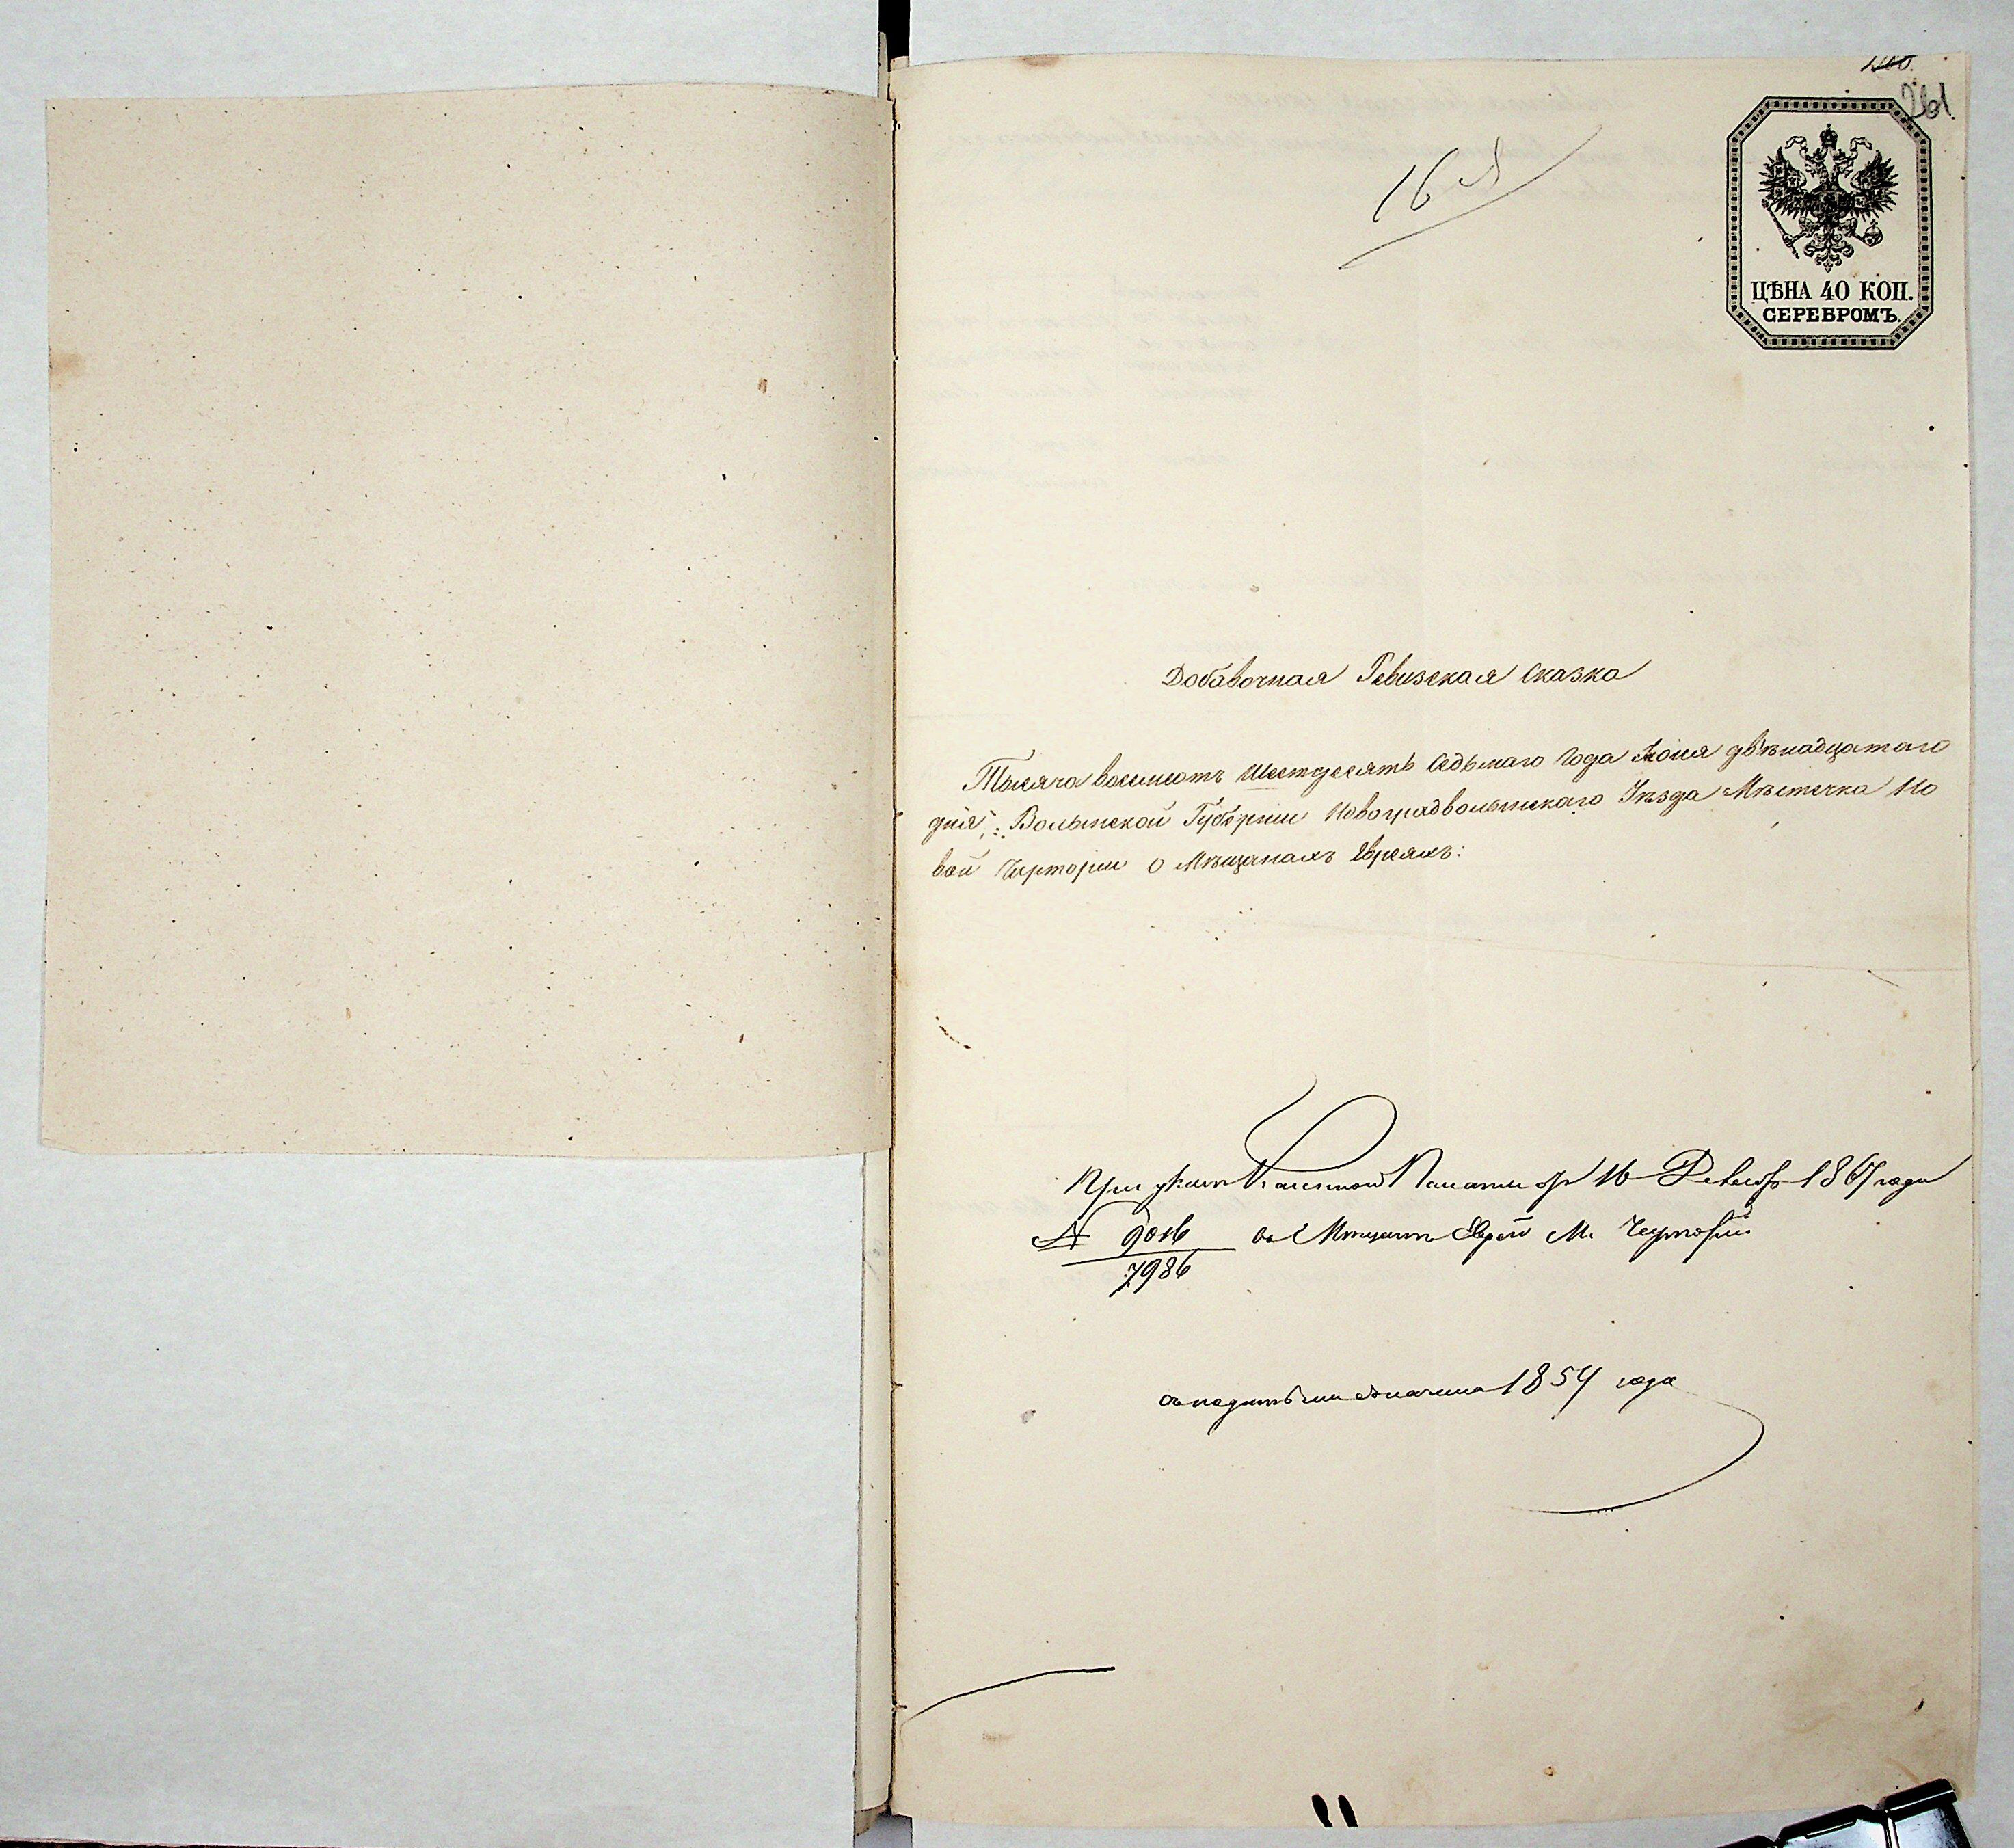 261.
16
ЦѢНА 40 КОП.
СЕРЕБРОМЪ.
Добавочная Ревизская Сказка
Тысяча восемсотъ Шестдесятъ Седьмаго Года Іюня двѣнадцатаго
дня, Волынской Губерніи Новоградволынскаго Уѣзда Мѣстечка Но
вой Чарторіи о Мѣщанахъ Евреяхъ:
При указѣ Казенной Палаты 16 1867 года
№ 7986 Мѣщанъ Еврей М. Чарторіи
1854 года